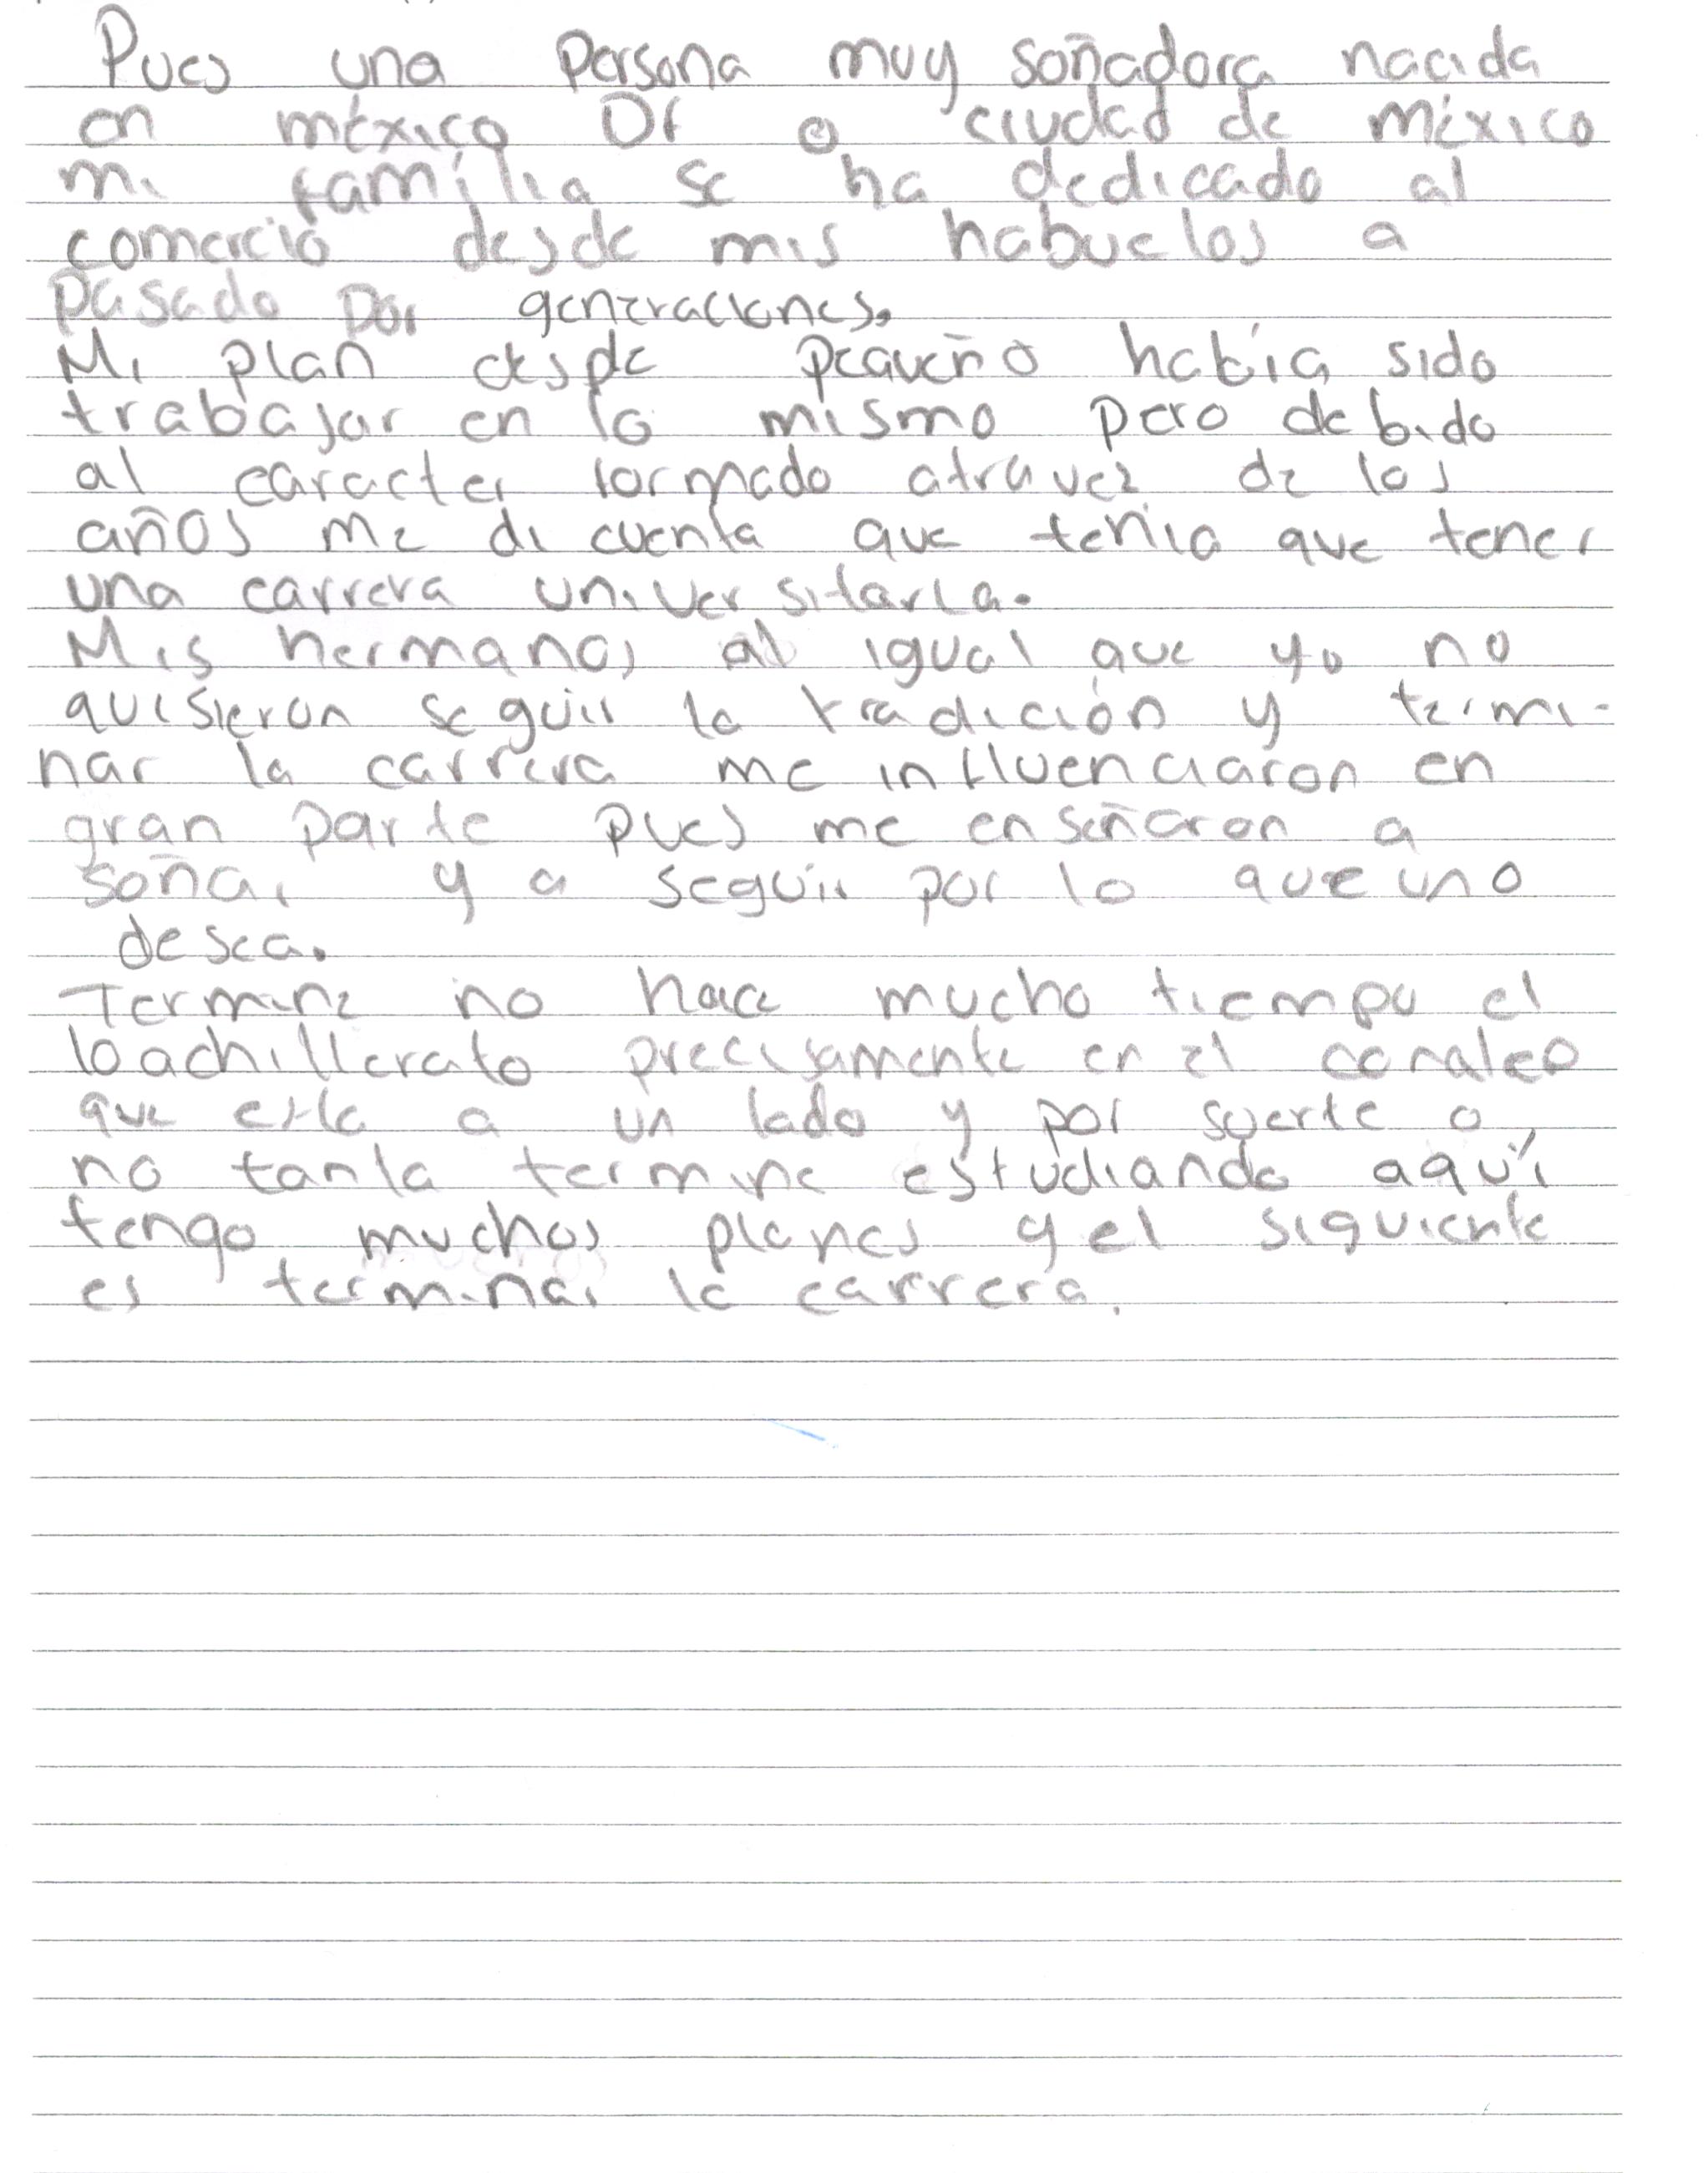 Pues una persona muy soñadora nacida
en méxico Df o ciudad de méxico
mi família se ha dedicado al
comerció desde mis habuelos a
pasado por generaciones.
Mi plan desde pequeño había sido
trabajar en lo mismo pero debido
al caracter formado atravez de los
años me di cuenta que tenia que tener
una carrera universitaria.
Mis hermanos al igual que yo no
quisieron seguir la tradición y termi-
nar la carrera me influenciaron en
gran parte pues me enseñaron a
soñar y a seguir por lo que uno
desea.
Termine no hace mucho tiempo el
bachillerato precisamente en el conalep
que esta a un lado y por suerte o
no tanta termine estudiando aquí
tengo muchos planes y el siguiente
es terminar la carrera.